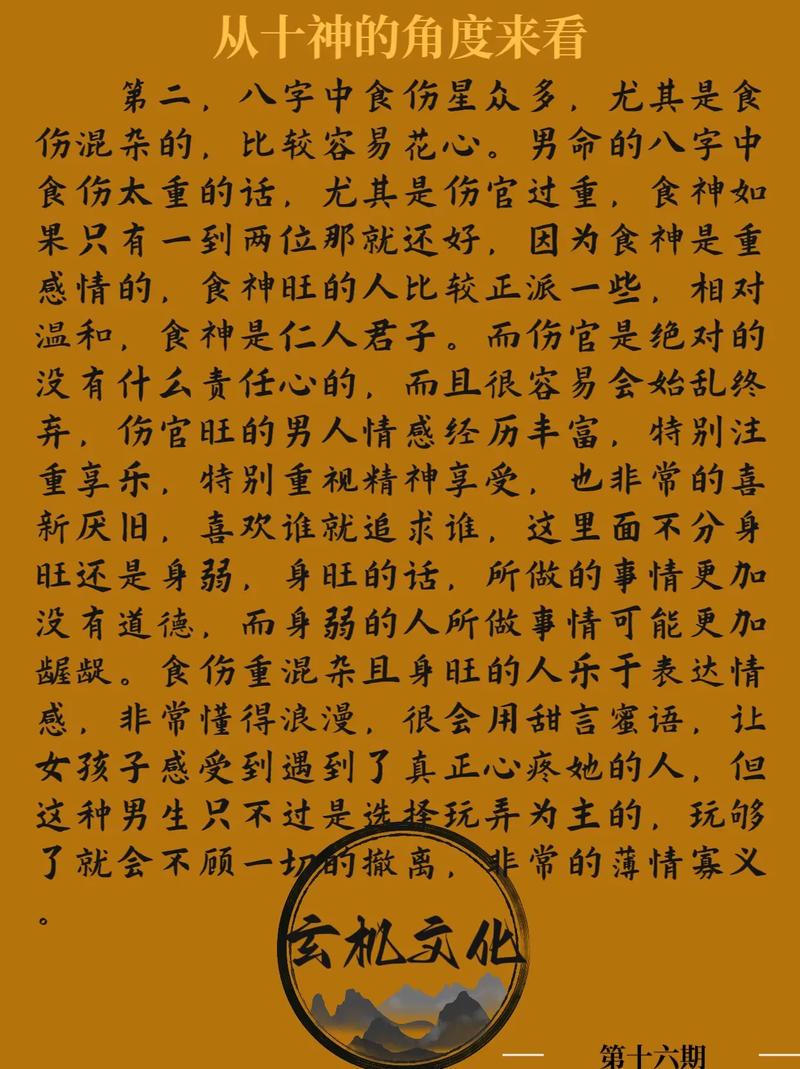 从十神的角度来看
第二，八字中食伤星众多，尤其是食
伤混杂的，比较容易花心。男命的八字中
食伤太重的话，尤其是伤官过重，食神如
果只有一到两位那就还好，因为食神是重
感情的，食神旺的人比较正派一些，相对
温和，食神是仁人君子。而伤官是绝对的
没有什么责任心的，而且很容易会始乱终
弃，伤官旺的男人情感经历丰富，特别注
重享乐，特别重视精神享受，也非常的喜
新厌旧，喜欢谁就追求谁，这里面不分身
旺还是身弱，身旺的话，所做的事情更加
没有道德，而身弱的人所做事情可能更加
龌龊。食伤重混杂且身旺的人乐于表达情
感，非常懂得浪漫，很会用甜言蜜语，让
女孩子感受到遇到了真正心疼她的人，但
这种男生只不过是选择玩弄为主的，玩够
了就会不顾一切的撤离，非常的薄情寡义
。
玄机文化
第十六期